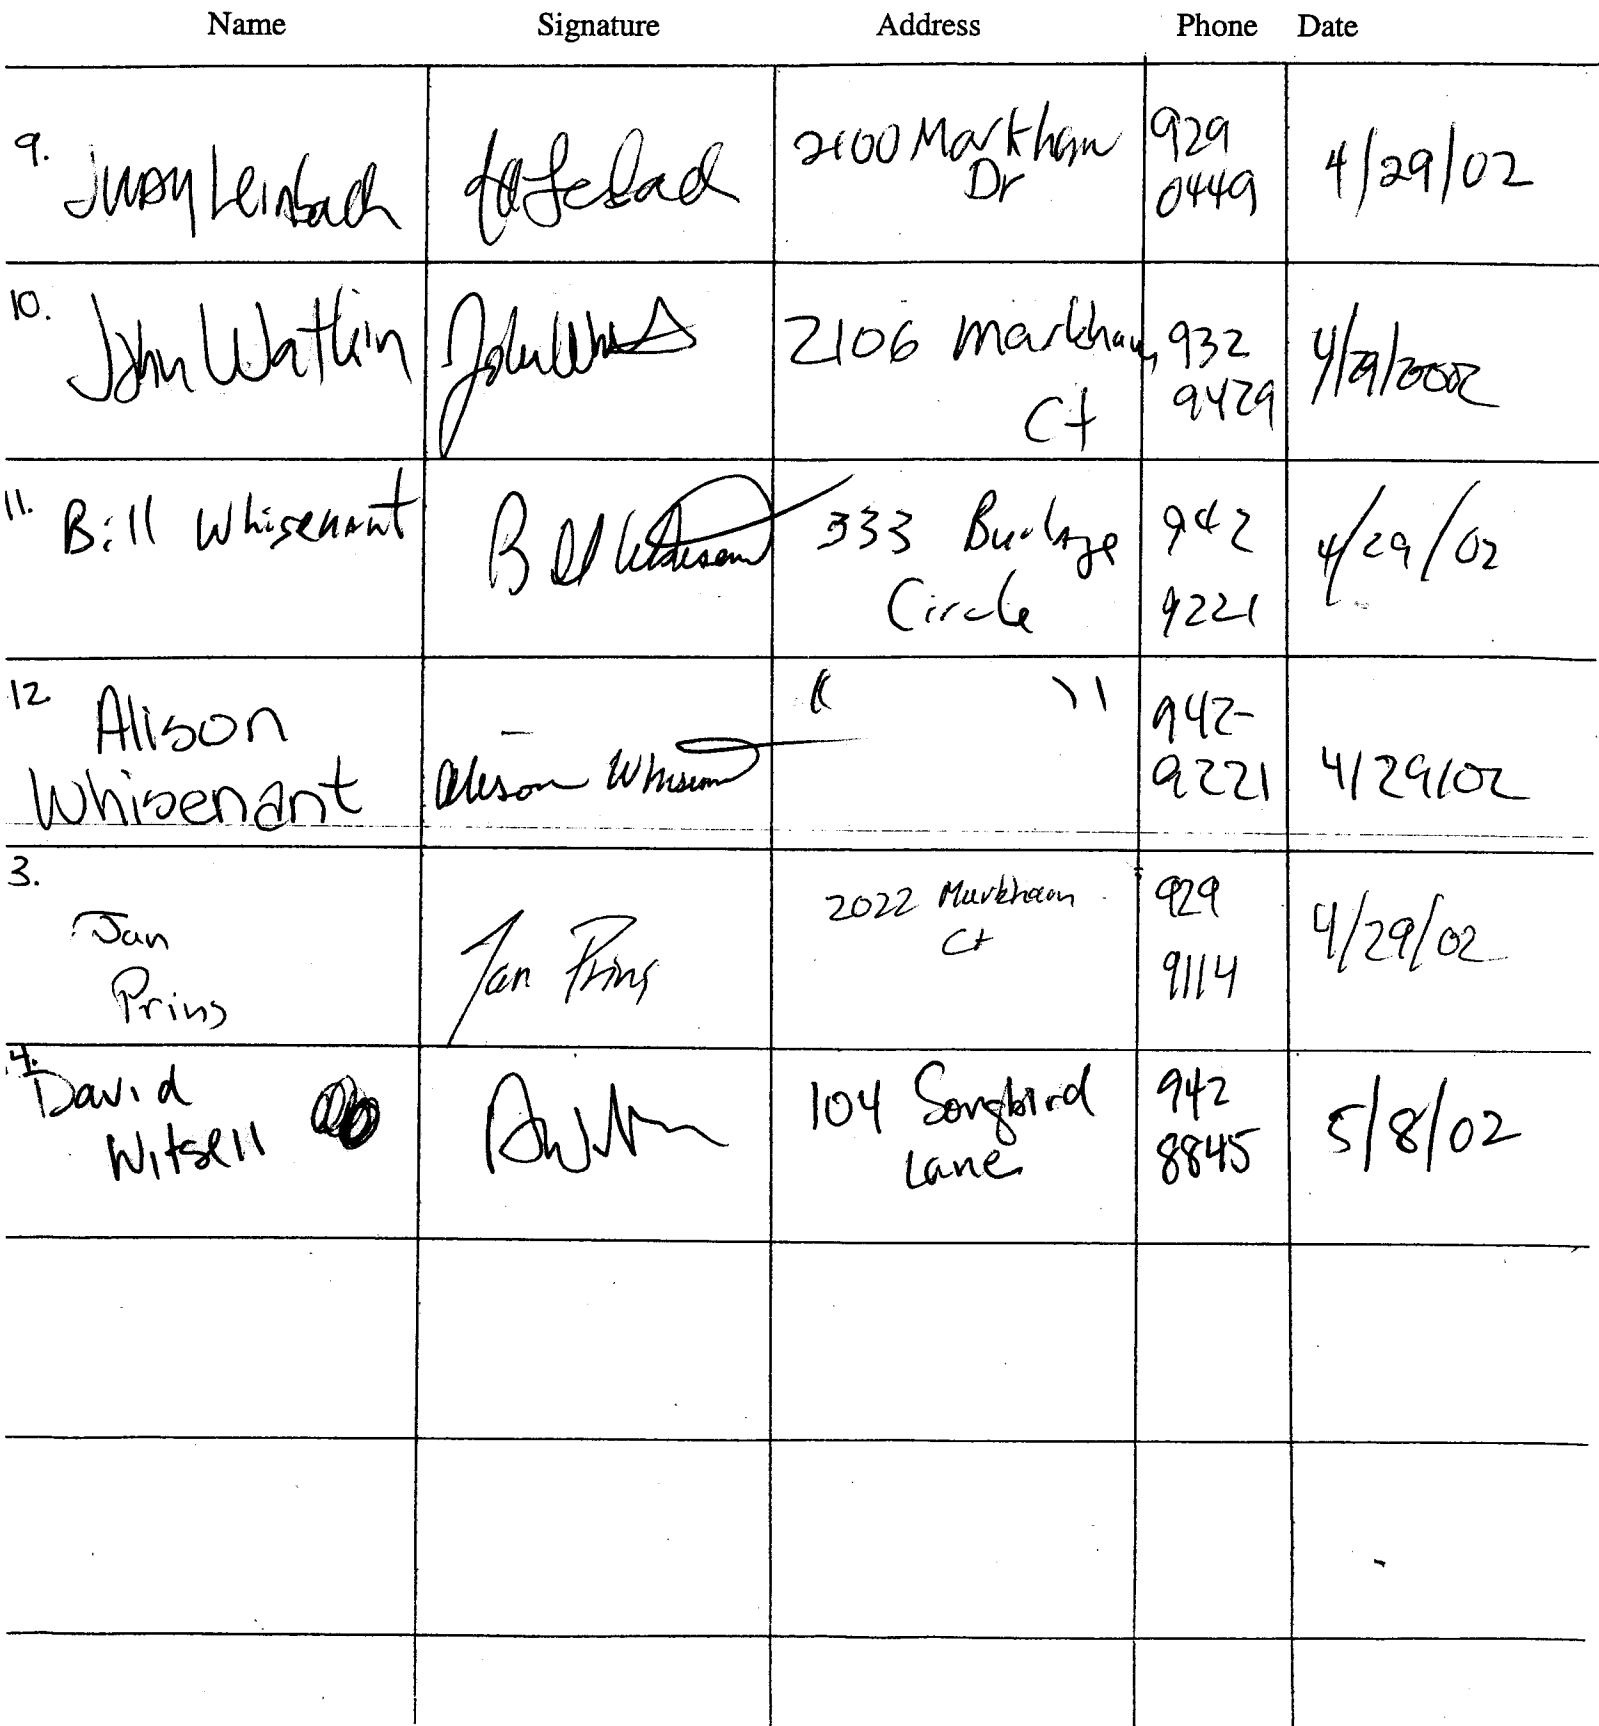 Name Signature Address Phone Date
9. Judy Leinbach 2100 Markham Dr 929 0449 4/29/02
10. John Watkin 2106 Markham Ct 932 9429 4/29/2002
11. Bill Whisenant Bill Whisenant 333 Circle 942 9221 4/29/02
12. Alison Whisenant Alison Whisenant " " 942-9221 4/29/02
3. Jan Prins Jan Prins 2022 Markham Ct 929 9114 4/29/02
4. David Witsell 104 Songbird Lane 942 8845 5/8/02